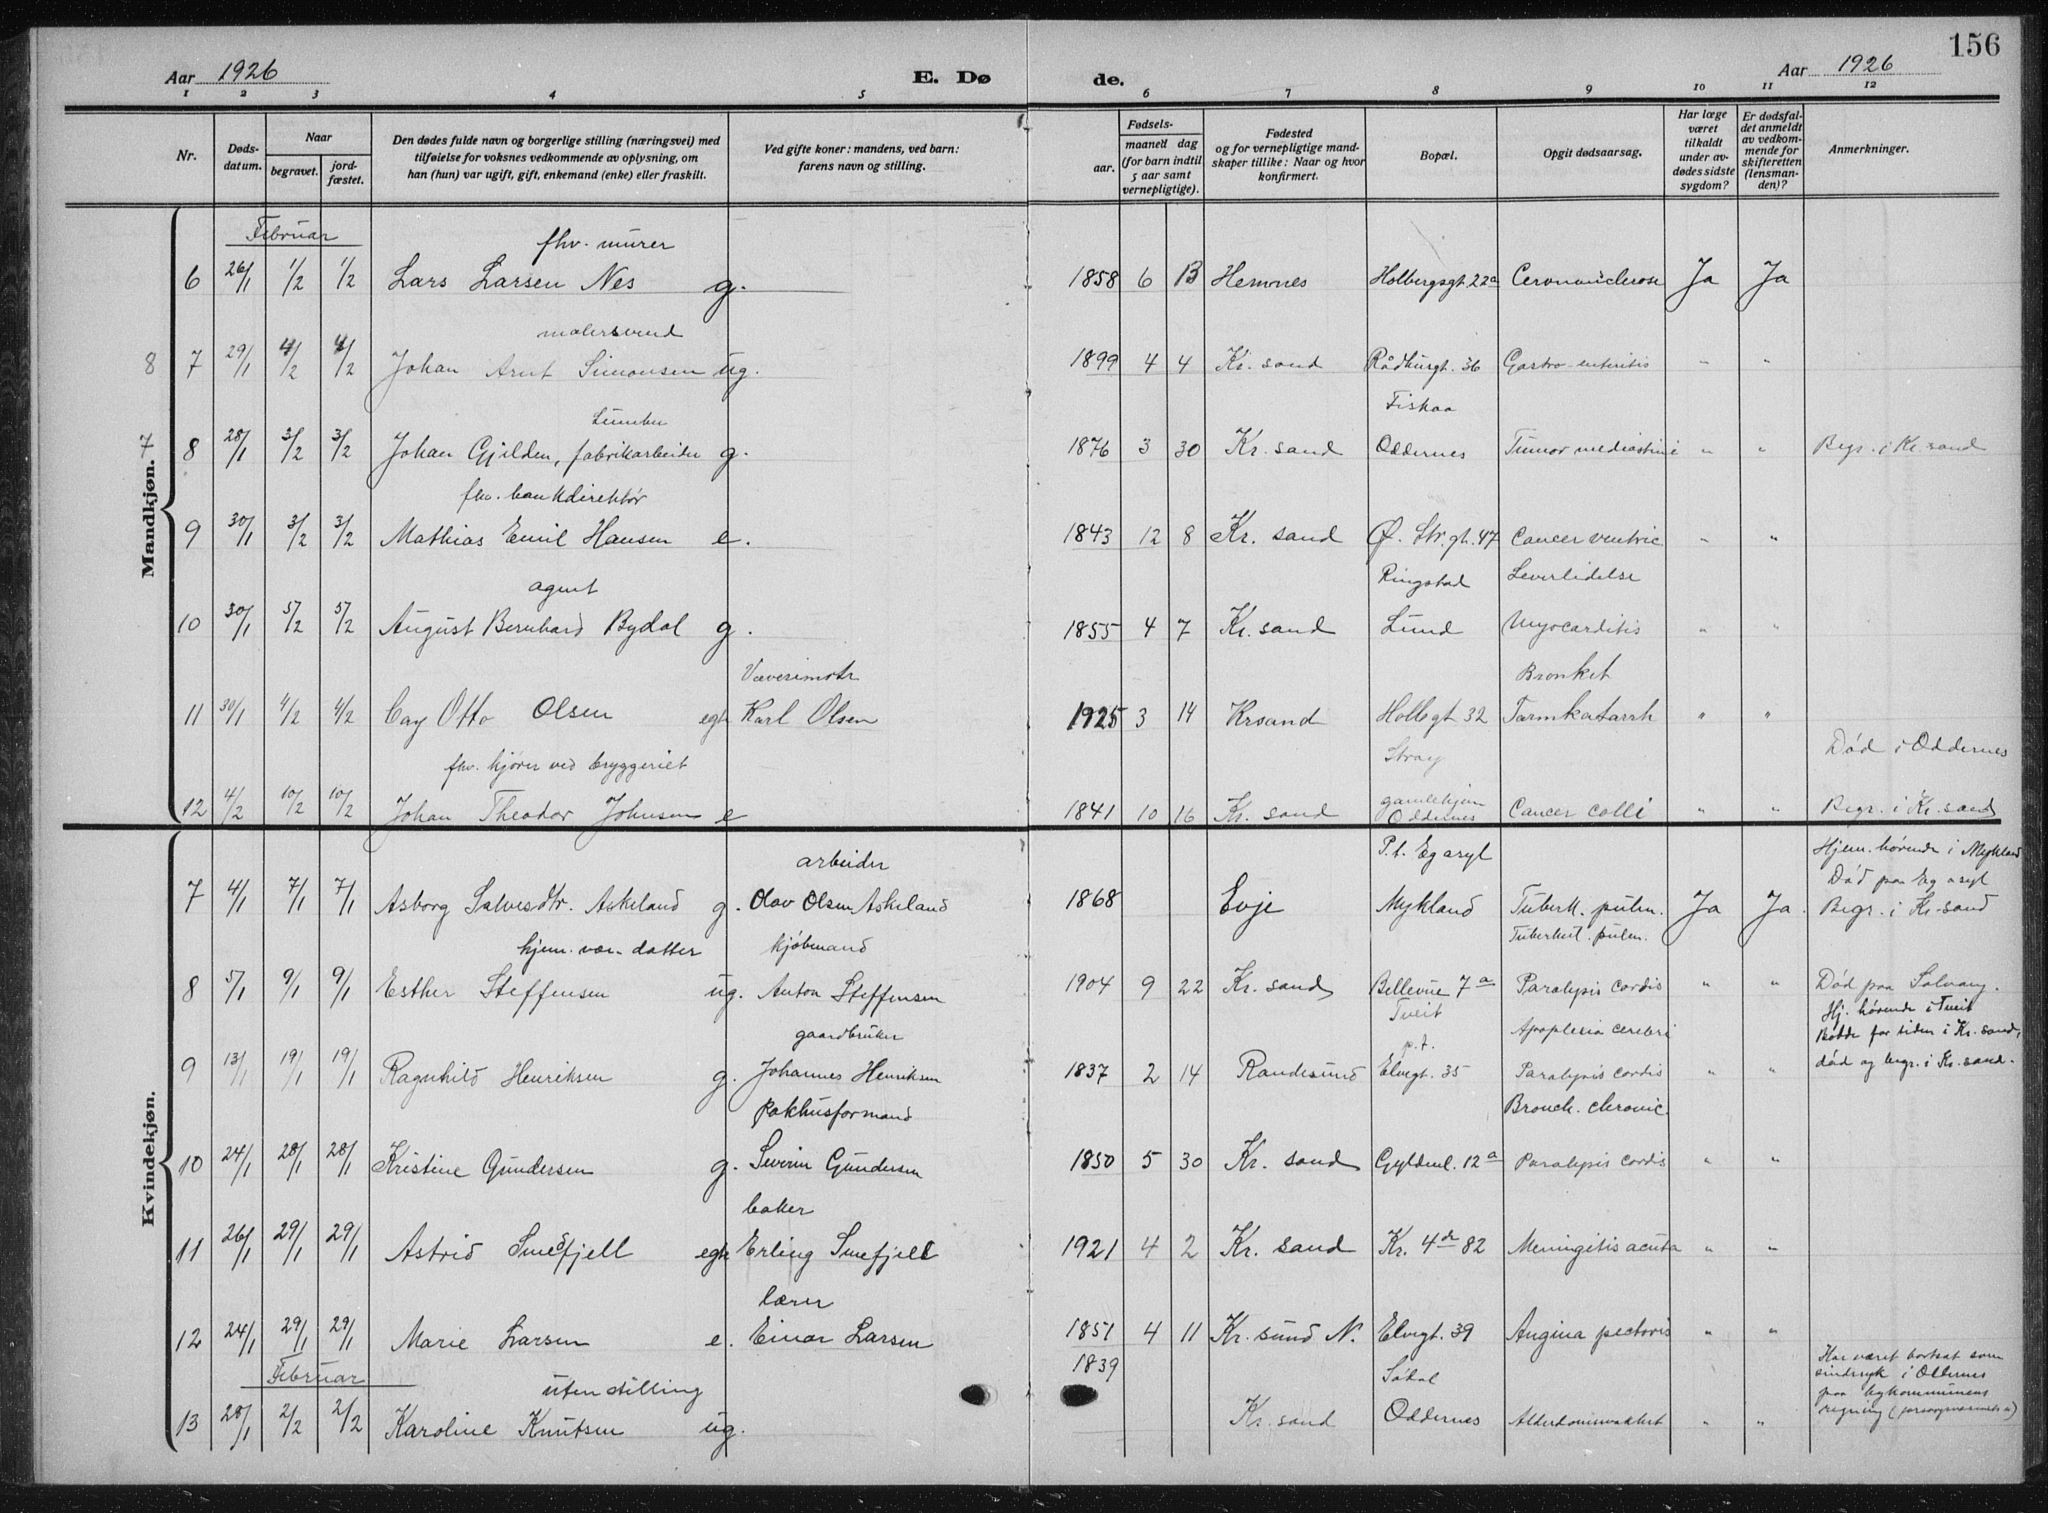 156
Aar 1926
E. Døde.
Aar 1926
1 2 3 4 5 6 7 8 9 10 11 12
Nr.
Dødsdatum.
Naar
begravet.
jordfæstet.
Den dødes fulde navn og borgerlige stilling (næringsvei) med
tilføielse for voksnes vedkommende av oplysning, om
han (hun) var ugift, gift, enkemand (enke) eller fraskilt.
Ved gifte koner: mandens, ved barn:
farens navn og stilling.
Fødsels-
aar. maaned dag
(for barn indtil
5 aar samt
vernepligtige).
Fødested
og for vernepligtige mand-
skaper tillike: Naar og hvor
konfirmert.
Bopæl.
Opgit dødsaarsag.
Har læge
været
tilkaldt
under av-
dødes sidste
sygdom?
Er dødsfal-
det anmeldt
av vedkom-
mende for
skifteretten
(lensman-
den)?
Anmerkninger.
Mandkjøn. 7
8
Februar
fhv. murer
6 26/1 1/2 1/2 Lars Larsen Nes g. 1858 6 13 Hemnes Holbergsgt. 22a Ja Ja
malersvend
7 29/1 4/2 4/2 Johan Arnt Simonsen ug. 1899 4 4 Kr. sand Rådhusgt. 36 Gastro-enteritis " "
Lumber Fiskaa
8 28/1 3/2 3/2 Johan Gjilden, fabrikarbeider g. 1876 3 30 Kr. sand Oddernes Tumor mediastini " " Begr. i Kr. sand
fhv. bankdirektör
9 30/1 3/2 3/2 Mathias Emil Hansen e. 1843 12 8 Kr. sand Ø. Str. gt. 47 Cancer ventric " "
agent Ringstad Leverlidelse
10 30/1 5/2 5/2 August Bernhard Bydal g. 1855 4 7 Kr. sand Lund Myocarditis " "
Væverimstr Bronket
11 30/1 4/2 4/2 Cay Otto Olsen egte Karl Olsen 1925 3 14 Krsand Hollegt 32 Tarmkatarrh " "
fhv. kjører ved bryggeriet Stray Død i Oddernes
12 4/2 10/2 10/2 Johan Theodor Johnsen e 1841 10 16 Kr. sand gamlehjem Oddernes Cancer colli " " Begr. i Kr. sand
Kvindekjøn.
arbeider P.t. Eg asyl Hjem.hørende i Mykland
Død paa Eg asyl
7 4/1 7/1 7/1 Asborg Salvesdtr. Askeland g. Olav Olsen Askeland 1868 Evje Mykland Tuberk. pulm. Ja Ja. Begr. i Kr. sand
hjem. vær. datter kjøbmand Tuberkul. pulm.
8 5/1 9/1 9/1 Esther Steffensen ug. Anton Steffensen 1904 9 22 Kr. sand Bellevue 7a Paralysis cordis " " Død paa Solvang.
gaardbruker Tveit p.t. Apoplexia cerebri Hj. hørende i Tveit
Bodde for tiden i Kr. sand,
9 13/1 19/1 19/1 Ragnhild Henriksen g. Johannes Henriksen 1837 2 14 Randesund Elvegt. 35 Paralysis cordis " " død og begr. i Kr. sand.
pakhusformand Bronch. chronic.
10 24/1 28/1 28/1 Kristine Gundersen g. Severin Gundersen 1850 5 30 Kr. sand Gyldenl. 12a Paralysis cordis " "
baker
11 26/1 29/1 29/1 Astrid Smedfjell egte Erling Smefjell 1921 4 2 Kr. sand Kr. 4de 82 Meningitis acuta " "
lærer
12 24/1 29/1 29/1 Marie Larsen e. Einar Larsen 1851 4 11 Kr. sund N. Elvegt. 39 Angina pectoris " "
Februar
uten stilling 1839 Søkal Har været bortsat som
sindssyk i Oddernes
paa bykommunens
13 28/1 2/2 2/2 Karoline Knutsen ug. Kr. sand Oddernes Alderdomssvakhet " " regning